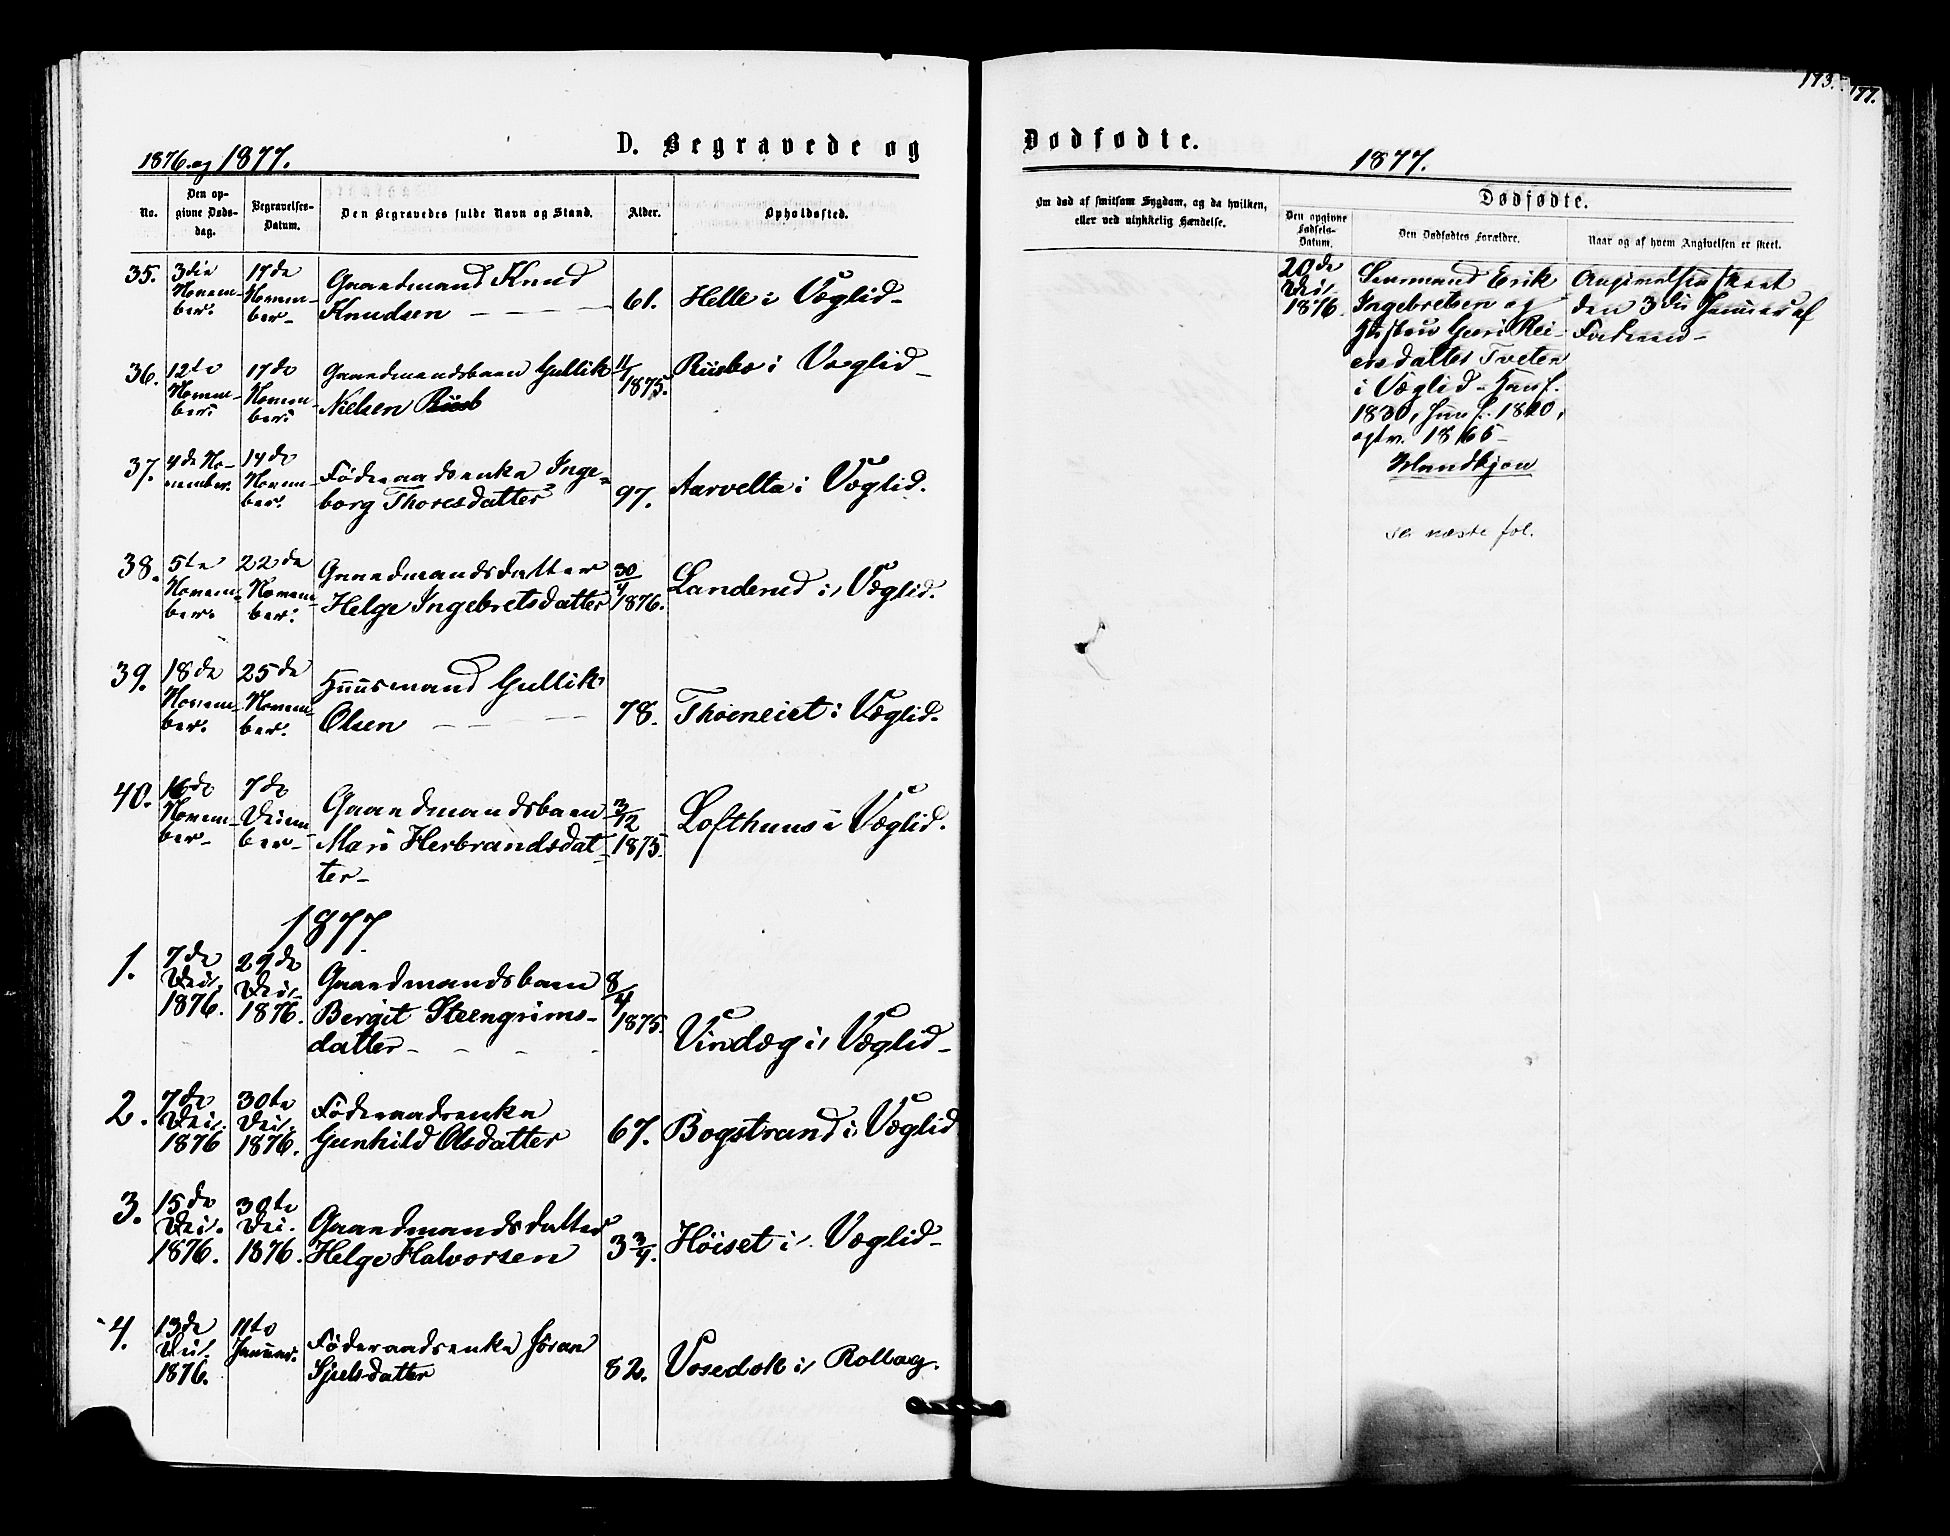 1876 og 1877.
D. Begravede og
No.
Den op-
givne Døds-
dag.
Begravelses-
Datum.
Den Begravedes fulde Navn og Stand.
Alder.
Opholdssted.
35.
3die
Novem-
ber.
17de
Novem-
ber-
Gaardmand Knud
Knudsen
61.
Helle i Væglid-
36.
12te
Novem-
ber.
17de
Novem-
ber.
Gaardmandsbarn Gullik
Nielsen
1875.
Rusbo i Væglid-
37.
4de No-
vember.
14de
Novem-
ber.
Føderaadsenke Inge-
borg Thoresdatter
97.
Aarvelta i Væglid.
38.
5te
Novem-
ber.
22de
Novem-
ber.
Gaardmandsdatter
Helge Ingebretsdatter
30/4
1876.
Landerud i Væglid.
39.
18de
Novem-
ber.
25de
Novem-
ber.
Huusmand Gullik
Olsen
78.
i Væglid.
40.
16de
Novem-
ber-
7de
Decem-
ber-
Gaardmandsbarn
Mari Herbrandsdat-
ter-
3/12
1875.
Lofthuus i Væglid.
1877.
1.
7de
Dec.
1876.
29de
Dec.
1876.
Gaardmandsbarn
Bergit Steengrims-
datter-
8/4
1875.
Vindeg i Væglid-
2.
7de
Dec.
1876
30te
Dec.
1876.
Føderaadsenke
Gunhild Olsdatter
67.
Bogstrand i Væglid
3.
15de
Dec.
1876.
30te
Dec.
1876.
Gaardmandsdatter
Helge Halvorsen
3 3/4.
Høiset i Væglid-
4.
13de
Dec.
1876.
11te
Januar.
Føderaadsenke Jøran
82.
i Rollag.
173.
177.
Dødfødte.
1877.
Om død af smitsom Sygdom, og da hvilken,
eller ved ulykkelig Hændelse.
Dødfødte.
Den opgivne
Fødsels-
Datum.
Den Dødfødtes Forældre.
Naar og af hvem Angivelsen er skeet.
20de
Dec.
1876.
Erik
Ingebretsen og
Hustru Guri Rei-
ersdatter Tveten
i Væglid- Han f.
1830, Hun f.
egtv. 1865-
Mandkjøn
Angivelsen skeet
den 3die Januar af
Faderen-
se næste fol.